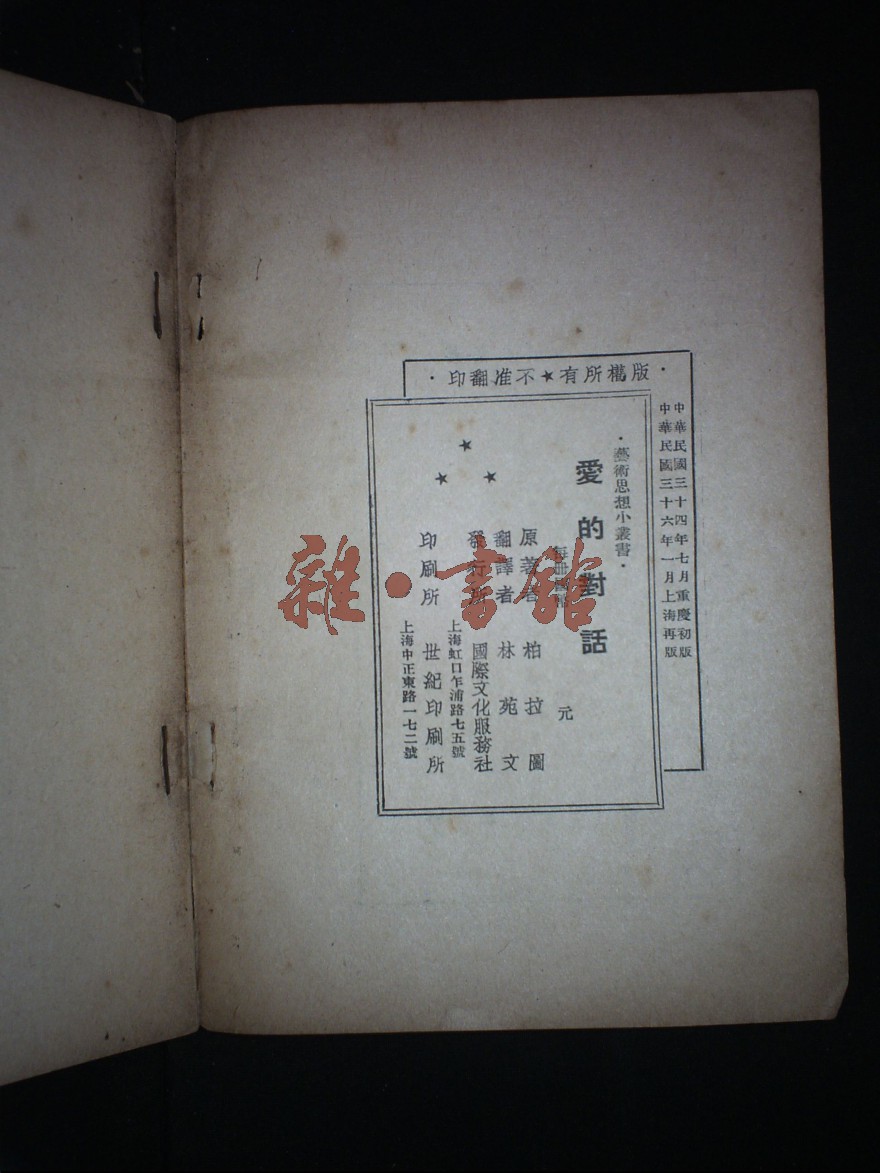 ·版權所有★不准翻印·
中華民國三十四年七月重慶初版
中華民國三十六年一月上海再版
·藝術思想小叢書·
愛的對話
每冊 元
原著者 柏拉圖
翻譯者 林苑文
發行所 國際文化服務社
上海虹口乍浦路七五號
印刷所 世紀印刷所
上海中正東路一七二號
雜·書館